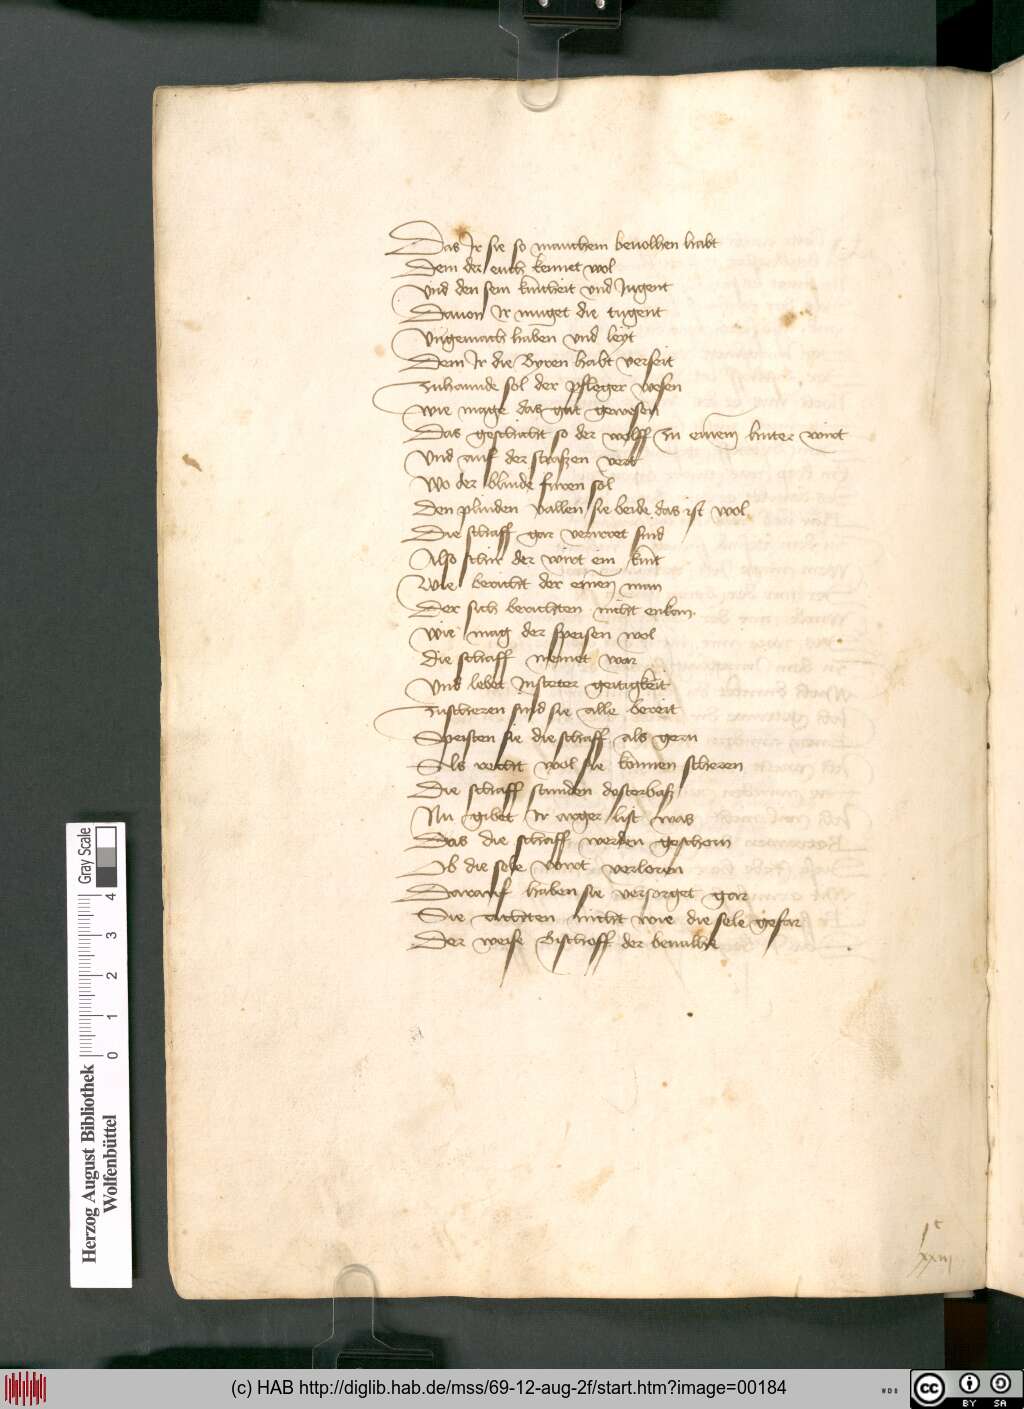 Das Ir sie so manchem beuolhen habt
Dem der euch kennet wol
Vnd den sein kintheit vnd Jugent
Dauon Ir muget die tugent
Vngemach haben vnd leyt
Dem Ir die Byren habt verseit
Zuhannde sol der pfleger wesen
wie mage das gut gewesen
Das geschicht so der wolff zu einem hirter wirt
Vnd auf der straszen vert
Wo der blinde furen sol
Den plinden vallen sie beide das ist wol
Die schaff gar verirret sind
Also schir der wirt ein kint
Wie bericht der einen man
Der sich berichten nicht enkan
Wie mag der speisen wol
die schaff nemet war
Vnd lebet Insteter geitigkeit
Zuscheren sind sie alle bereit
Speisten sie die schaff als gern
Als recht wol sie konnen scheren
Die schaff stunden desterbasz
Nu gibet Ir arger list was
Das die schaff werden geschorn
Ob die sele wirt verloren
Darauf haben sie versorget gar
Sie achten nicht wie die sele gefar
Der weise Bischoff der beuilhe
lxxiij
Herzog August Bibliothek
Wolfenbüttel
0 1 2 3 4
Gray Scale
(c) HAB http://diglib.hab.de/mss/69-12-aug-2f/start.htm?image=00184
WDB
cc BY SA